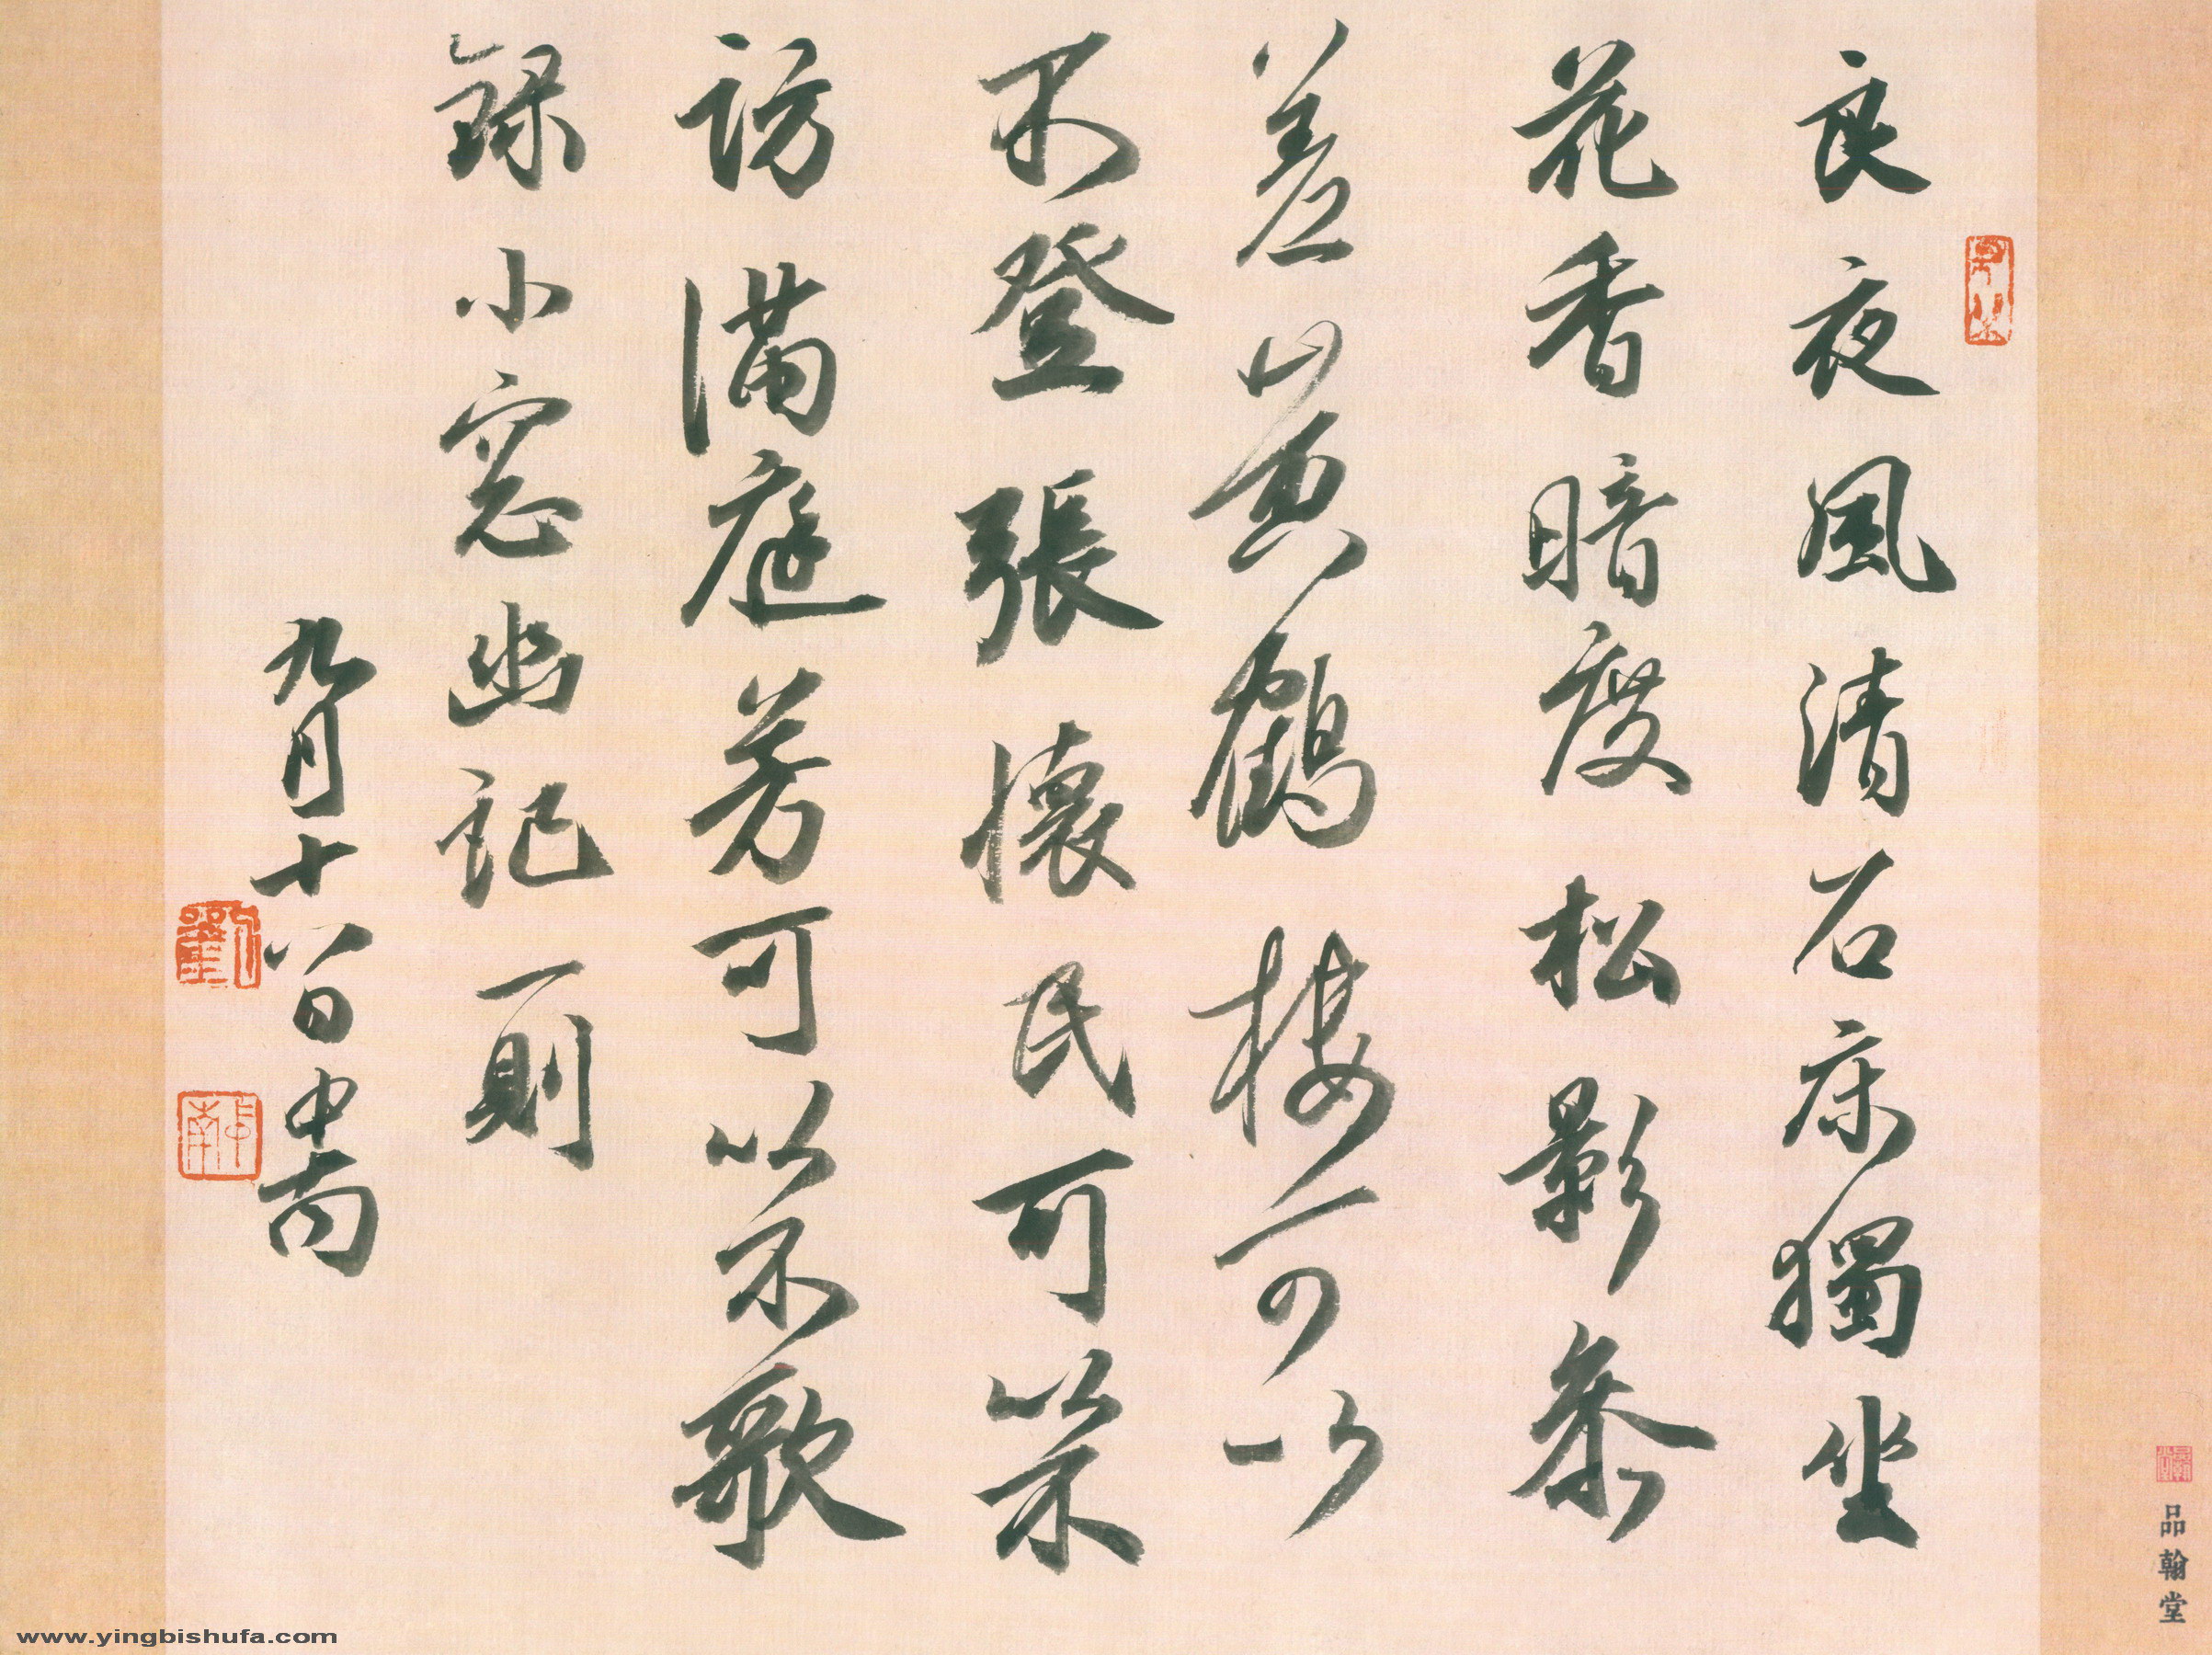 良夜風清石床獨坐
花香暗度松影參
差黃鶴樓可以
不登張懷民可以不
訪滿庭芳可以不歌
錄小窓幽記一則
九月十八日
品翰堂
www.yingbishufa.com